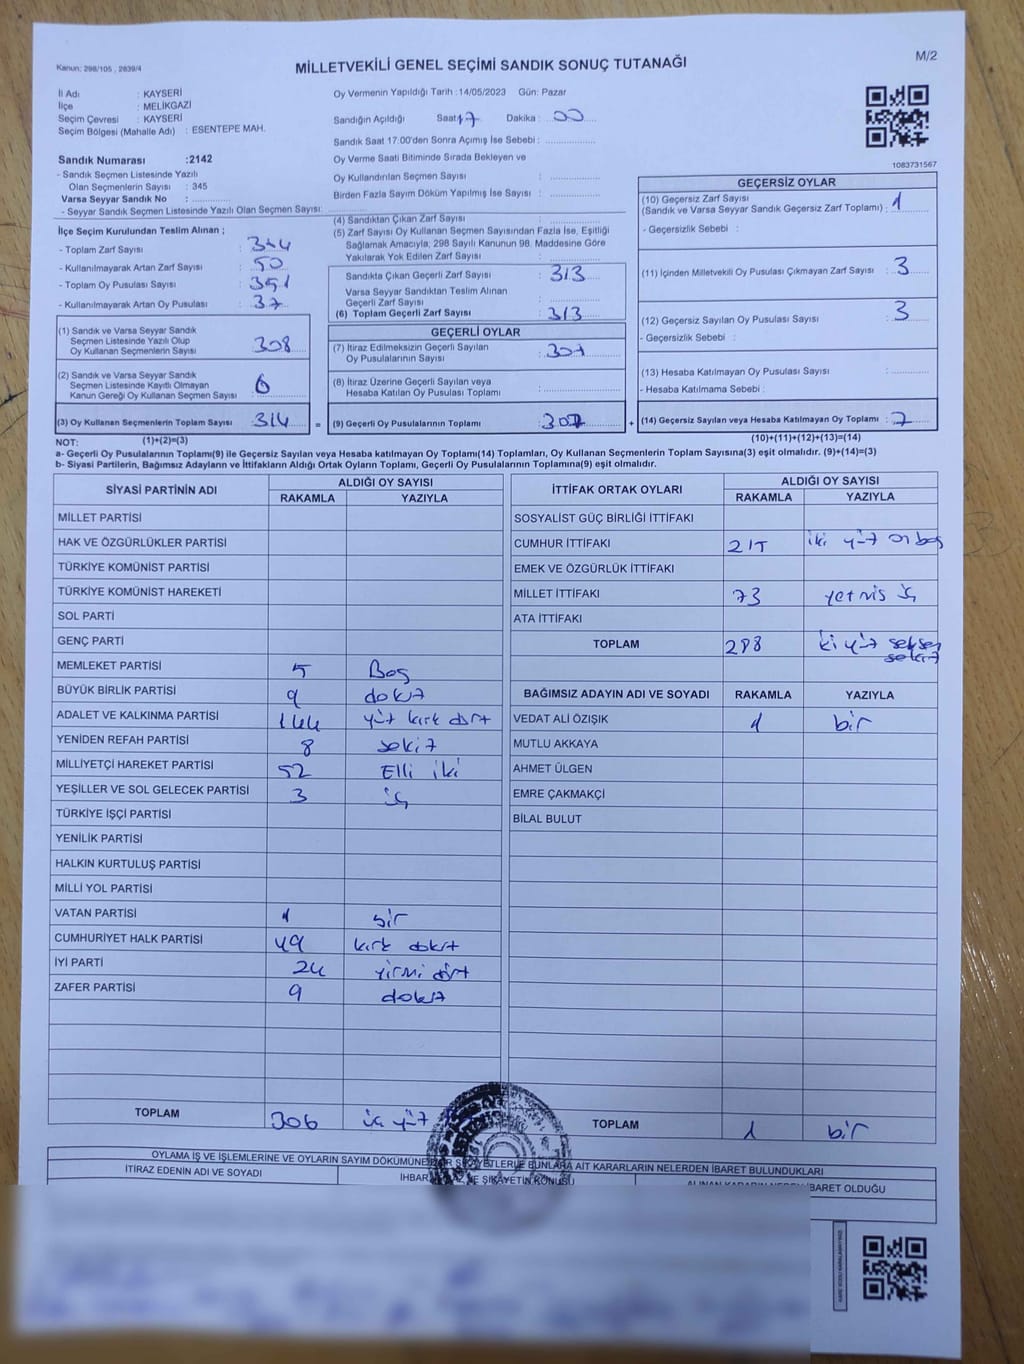 Kanun: 298/105 , 2839/4
MİLLETVEKİLİ GENEL SEÇİMİ SANDIK SONUÇ TUTANAĞI
M/2
İl Adı : KAYSERİ
İlçe : MELİKGAZİ
Seçim Çevresi : KAYSERİ
Seçim Bölgesi (Mahalle Adı) : ESENTEPE MAH.
Sandık Numarası :2142
- Sandık Seçmen Listesinde Yazılı
Olan Seçmenlerin Sayısı : 345
Varsa Seyyar Sandık No :
- Seyyar Sandık Seçmen Listesinde Yazılı Olan Seçmen Sayısı:
Oy Vermenin Yapıldığı Tarih : 14/05/2023 Gün: Pazar
Sandığın Açıldığı Saat: 17 Dakika : 00
Sandık Saat 17:00'den Sonra Açılmış İse Sebebi :
Oy Verme Saati Bitiminde Sırada Bekleyen ve
Oy Kullandırılan Seçmen Sayısı :
Birden Fazla Sayım Döküm Yapılmış İse Sayısı :
1083731567
İlçe Seçim Kurulundan Teslim Alınan ;
- Toplam Zarf Sayısı : 364
- Kullanılmayarak Artan Zarf Sayısı : 50
- Toplam Oy Pusulası Sayısı : 351
- Kullanılmayarak Artan Oy Pusulası : 37
(1) Sandık ve Varsa Seyyar Sandık
Seçmen Listesinde Yazılı Olup
Oy Kullanan Seçmenlerin Sayısı : 308
(2) Sandık ve Varsa Seyyar Sandık
Seçmen Listesinde Kayıtlı Olmayan
Kanun Gereği Oy Kullanan Seçmen Sayısı : 6
(3) Oy Kullanan Seçmenlerin Toplam Sayısı : 314
(4) Sandıktan Çıkan Zarf Sayısı :
(5) Zarf Sayısı Oy Kullanan Seçmen Sayısından Fazla İse, Eşitliği
Sağlamak Amacıyla, 298 Sayılı Kanunun 98. Maddesine Göre
Yakılarak Yok Edilen Zarf Sayısı :
Sandıkta Çıkan Geçerli Zarf Sayısı : 313
Varsa Seyyar Sandıktan Teslim Alınan
Geçerli Zarf Sayısı :
(6) Toplam Geçerli Zarf Sayısı : 313
GEÇERLİ OYLAR
(7) İtiraz Edilmeksizin Geçerli Sayılan
Oy Pusulalarının Sayısı : 307
(8) İtiraz Üzerine Geçerli Sayılan veya
Hesaba Katılan Oy Pusulası Toplamı :
= (9) Geçerli Oy Pusulalarının Toplamı : 307
GEÇERSİZ OYLAR
(10) Geçersiz Zarf Sayısı
(Sandık ve Varsa Seyyar Sandık Geçersiz Zarf Toplamı) : 1
- Geçersizlik Sebebi :
(11) İçinden Milletvekili Oy Pusulası Çıkmayan Zarf Sayısı : 3
(12) Geçersiz Sayılan Oy Pusulası Sayısı : 3
- Geçersizlik Sebebi :
(13) Hesaba Katılmayan Oy Pusulası Sayısı :
- Hesaba Katılmama Sebebi :
+ (14) Geçersiz Sayılan veya Hesaba Katılmayan Oy Toplamı : 7
NOT: (1)+(2)=(3) (10)+(11)+(12)+(13)=(14)
a- Geçerli Oy Pusulalarının Toplamı(9) ile Geçersiz Sayılan veya Hesaba Katılmayan Oy Toplamı(14) Toplamları, Oy Kullanan Seçmenlerin Toplam Sayısına(3) eşit olmalıdır. (9)+(14)=(3)
b- Siyasi Partilerin, Bağımsız Adayların ve İttifakların Aldığı Ortak Oyların Toplamı, Geçerli Oy Pusulalarının Toplamına(9) eşit olmalıdır.
SİYASİ PARTİNİN ADI ALDIĞI OY SAYISI
RAKAMLA YAZIYLA
MİLLET PARTİSİ
HAK VE ÖZGÜRLÜKLER PARTİSİ
TÜRKİYE KOMÜNİST PARTİSİ
TÜRKİYE KOMÜNİST HAREKETİ
SOL PARTİ
GENÇ PARTİ
MEMLEKET PARTİSİ 5 Beş
BÜYÜK BİRLİK PARTİSİ 9 dokuz
ADALET VE KALKINMA PARTİSİ 144 yüz kırk dört
YENİDEN REFAH PARTİSİ 8 sekiz
MİLLİYETÇİ HAREKET PARTİSİ 52 Elli iki
YEŞİLLER VE SOL GELECEK PARTİSİ 3 üç
TÜRKİYE İŞÇİ PARTİSİ
YENİLİK PARTİSİ
HALKIN KURTULUŞ PARTİSİ
MİLLİ YOL PARTİSİ
VATAN PARTİSİ 1 bir
CUMHURİYET HALK PARTİSİ 49 kırk dokuz
İYİ PARTİ 24 yirmi dört
ZAFER PARTİSİ 9 dokuz
TOPLAM 306 üç yüz
İTTİFAK ORTAK OYLARI ALDIĞI OY SAYISI
RAKAMLA YAZIYLA
SOSYALİST GÜÇ BİRLİĞİ İTTİFAKI
CUMHUR İTTİFAKI 215 iki yüz on beş
EMEK VE ÖZGÜRLÜK İTTİFAKI
MİLLET İTTİFAKI 73 yetmiş üç
ATA İTTİFAKI
TOPLAM 288 iki yüz seksen
sekiz
BAĞIMSIZ ADAYIN ADI VE SOYADI RAKAMLA YAZIYLA
VEDAT ALİ ÖZIŞIK 1 bir
MUTLU AKKAYA
AHMET ÜLGEN
EMRE ÇAKMAKÇİ
BİLAL BULUT
TOPLAM 1 bir
OYLAMA İŞ VE İŞLEMLERİNE VE OYLARIN SAYIM DÖKÜMÜNE DAİR ŞİKAYETLERLE BUNLARA AİT KARARLARIN NELERDEN İBARET BULUNDUKLARI
İTİRAZ EDENİN ADI VE SOYADI